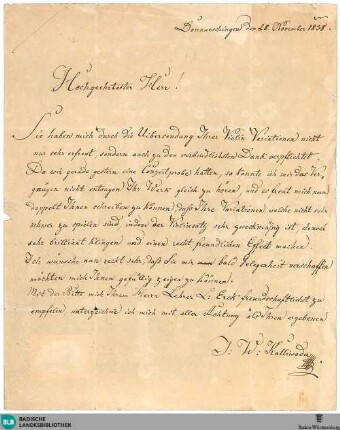 Donaueschingen den 28. November 1838.
Hochgeehrtester Herr!
Sie haben mich durch die Uibersendung Ihrer Violin Variationen nicht
nur sehr erfreut, sondern auch zu den verbindlichsten Dank verpflichtet.
Da wir gerade gestern eine Conzertprobe hatten, so konnte ich mir das Ver-
gnügen nicht entsagen Ihr Werk gleich zu hören und es freut mich nun
doppelt Ihnen schreiben zu können daß Ihre Variationen welche nicht sehr
schwer zu spielen sind, indem der Violinsatz sehr zweckmäßig ist, dennoch
sehr brilliant klingen und einen recht freundlichen Effect machen.
Ich wünsche nun recht sehr, daß Sie mir bald Gelegenheit verschaffen
möchten mich Ihnen gefällig zeigen zu können.
Mit der Bitte mich Ihrem Herrn Lehrer L: Erck freundschaftlichst zu
empfelen unterzeichne ich mich mit aller Achtung als Ihren ergebenen
J: W: Kalliwoda
BLB BADISCHE
LANDESBIBLIOTHEK
Baden-Württemberg